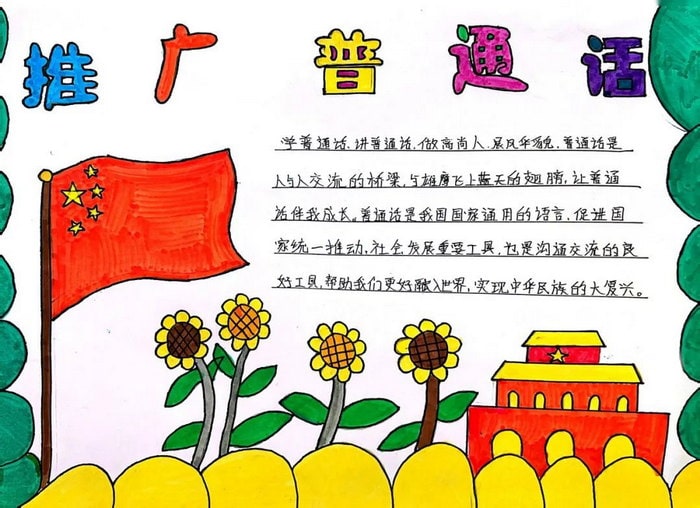 推广普通话
学普通话，讲普通话，做高尚人，展风华貌，普通话是
人与人交流的桥梁，与雄鹰飞上蓝天的翅膀，让普通
话伴我成长。普通话是我国国家通用的语言，促进国
家统一推动，社会发展重要工具，也是沟通交流的良
好工具，帮助我们更好融入世界，实现中华民族的大复兴。